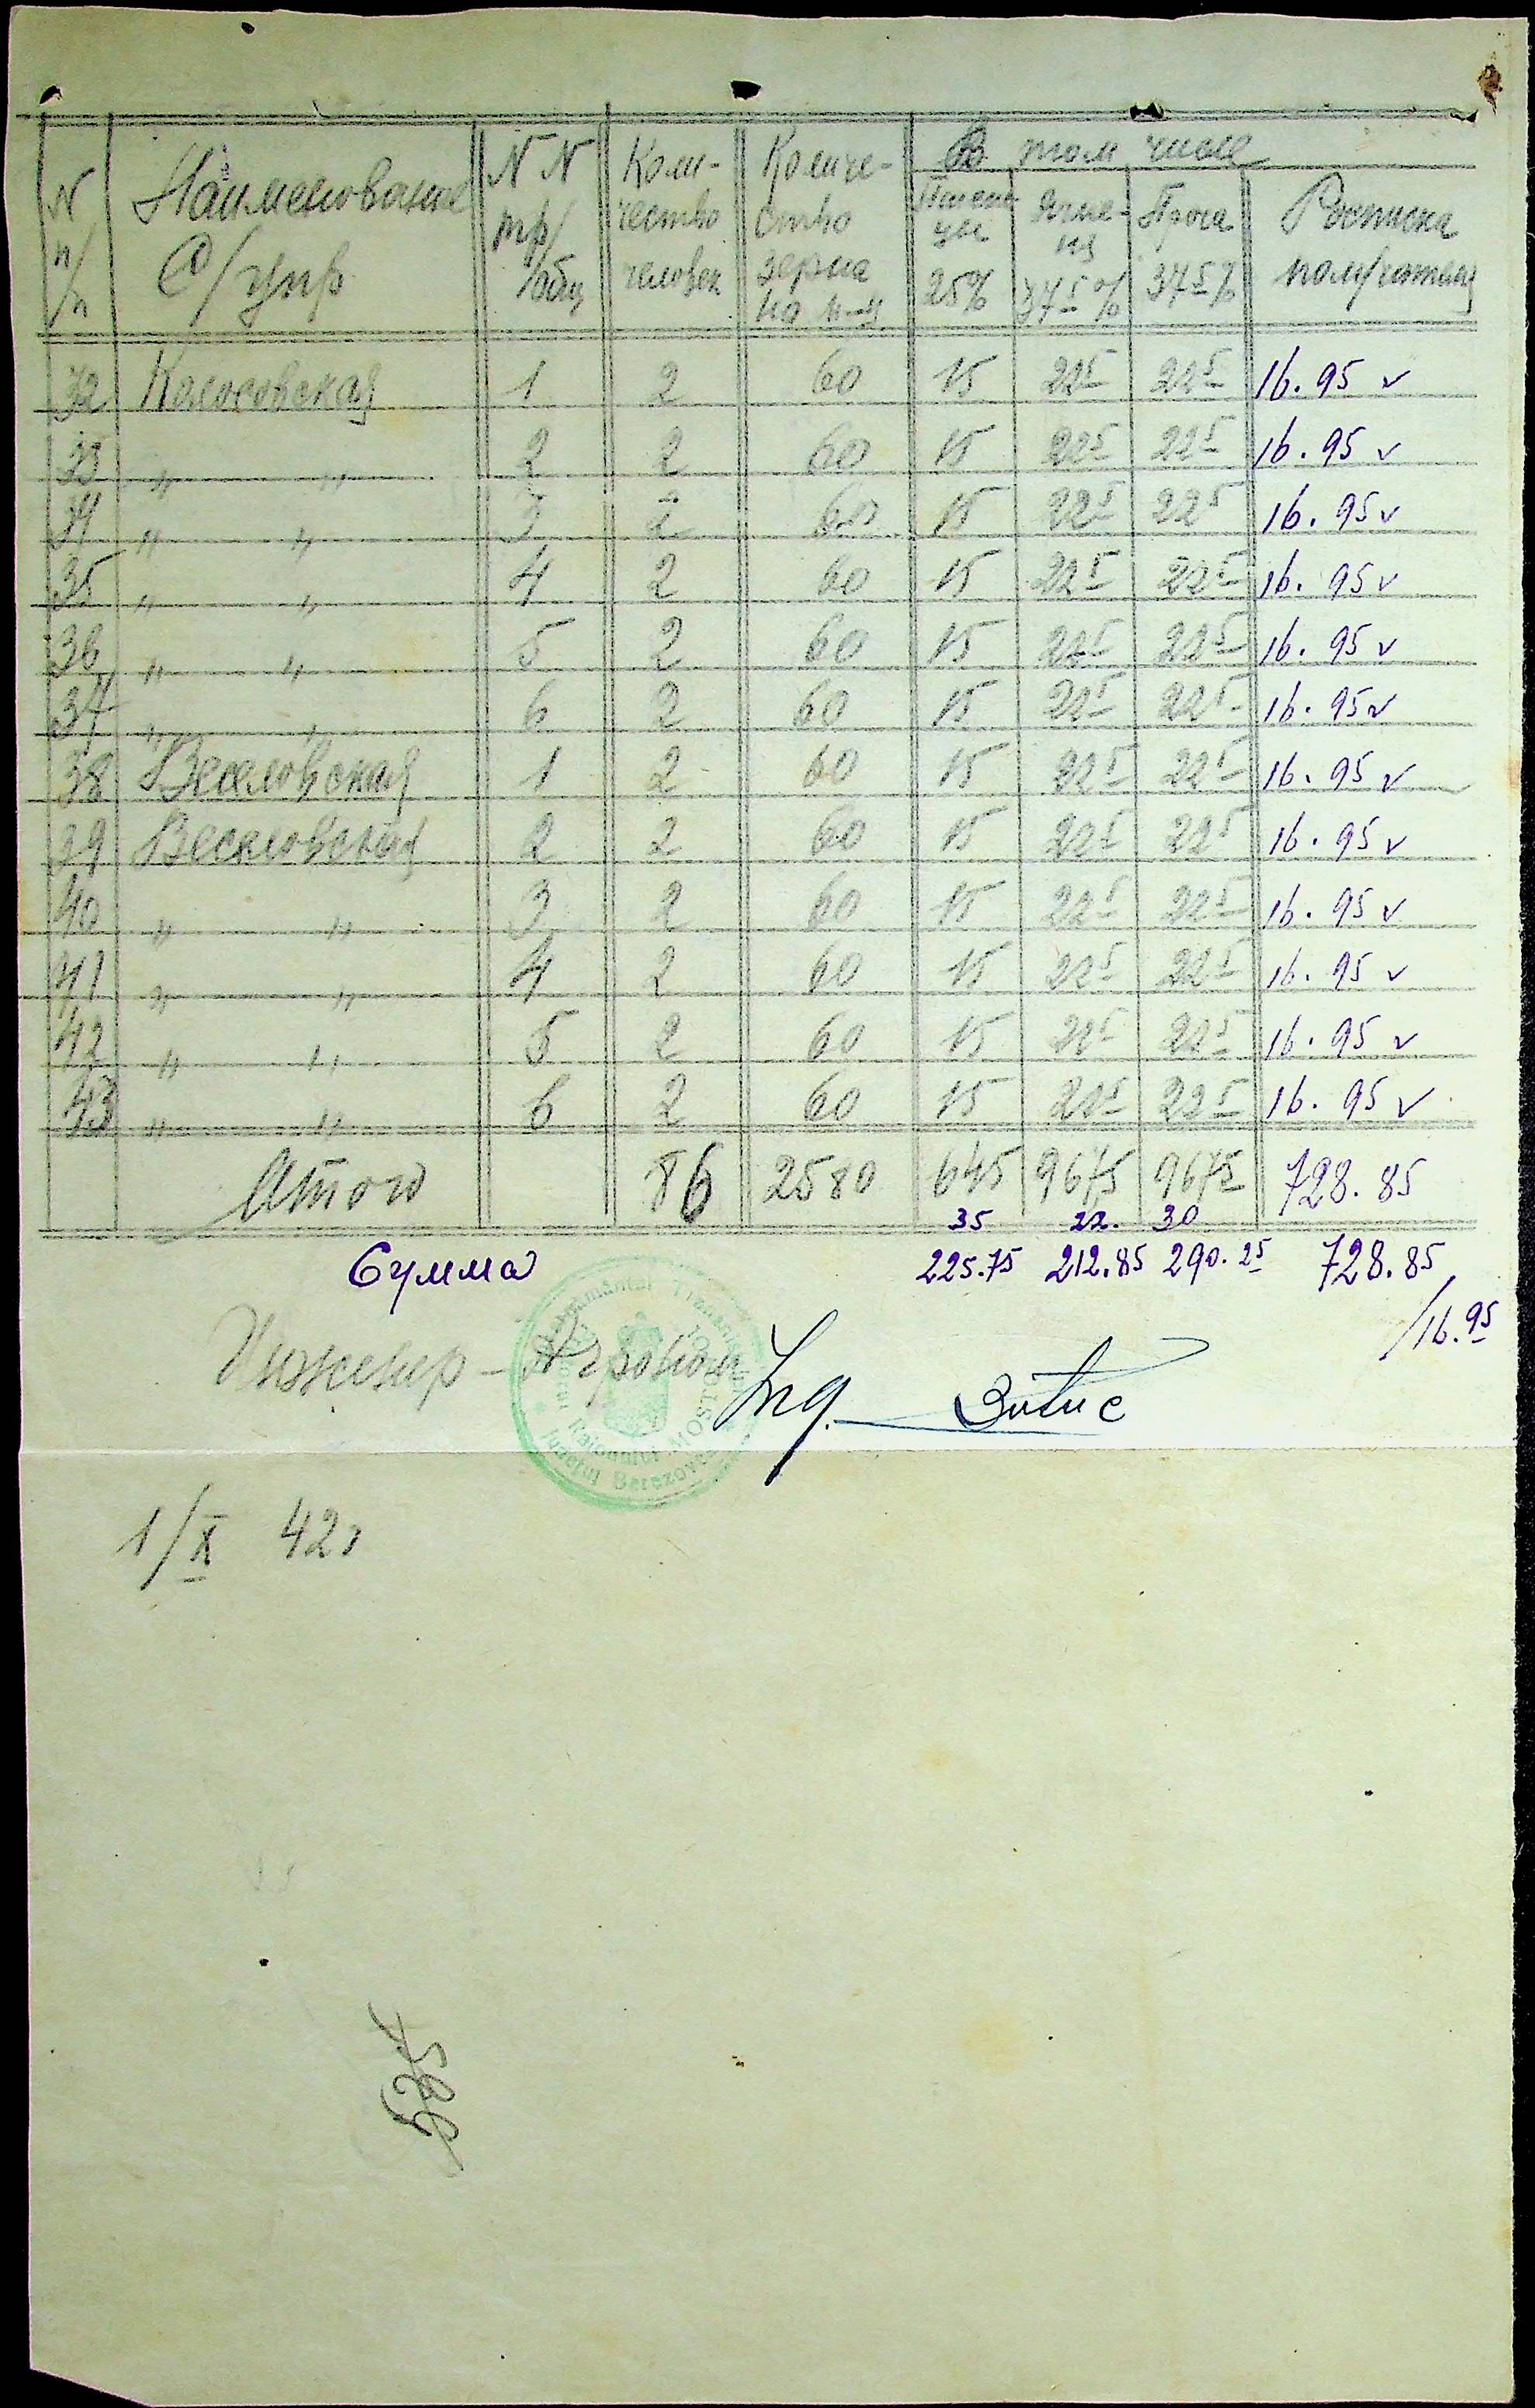 N п/п | Наименование С/упр | N N тр/общ | Коли- чество человек | Количе- ство зерна на м-ц | В том числе | Росписка получателя
Пшени цы 25% | Ячме- ня 37 5 % | Проса 37 5 %
32 Колосовская 1 2 60 15 22 5 22 5 16. 95 v
33 " " 2 2 60 15 22 5 22 5 16. 95 v
34 " " 3 2 60 15 22 5 22 5 16. 95 v
35 " " 4 2 60 15 22 5 22 5 16. 95 v
36 " " 5 2 60 15 22 5 22 5 16. 95 v
37 " " 6 2 60 15 22 5 22 5 16. 95 v
38 Веселовская 1 2 60 15 22 5 22 5 16. 95 v
39 Веселовская 2 2 60 15 22 5 22 5 16. 95 v
40 " " 3 2 60 15 22 5 22 5 16. 95 v
41 " " 4 2 60 15 22 5 22 5 16. 95 v
42 " " 5 2 60 15 22 5 22 5 16. 95 v
43 " " 6 2 60 15 22 5 22 5 16. 95 v
Итого 86 2580 645 967 5 967 5 728. 85
35 22. 30
Сумма 225.75 212.85 290. 25 728. 85
/16. 95
Инженер - Агроном Ing.
Raionului MOSTOVOI
Județul Berezovca
1/X 42г